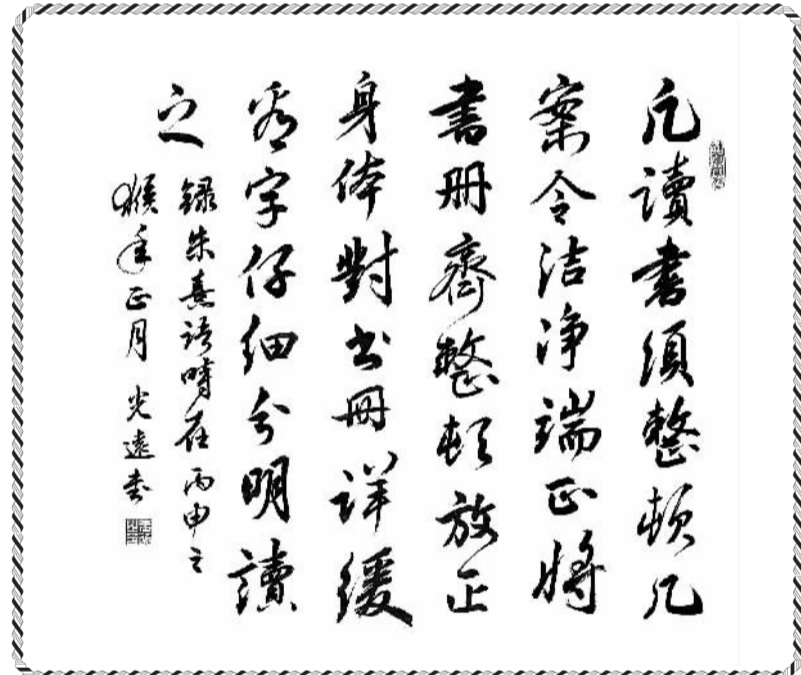 凡讀書須整頓几
案令洁净端正將
書冊齊整頓放正
身体對书冊详缓
看字仔细分明讀
之
録朱熹语時在丙申之
猴年正月 光遠书